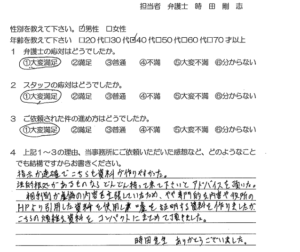 担当者 弁護士 時田 剛志
性別を教えて下さい。 ☑男性 □女性
年齢を教えて下さい □20代□30代☑40代□50代□60代□70才以上
1 弁護士の応対はどうでしたか。
①大変満足 ②満足 ③普通 ④不満 ⑤大変不満 ⑥分からない
2 スタッフの応対はどうでしたか。
①大変満足 ②満足 ③普通 ④不満 ⑤大変不満 ⑥分からない
3 ご依頼された件の進め方はどうでしたか。
①大変満足 ②満足 ③普通 ④不満 ⑤大変不満 ⑥分からない
4 上記1~3の理由、当事務所にご依頼いただいた感想など、どのようなこと
でも結構ですからお書きください。
指示が速確でこちらも資料が作りやすかった。
法的根拠があるものなどどんどん持って来て下さいとアドバイスを頂いた。
相手側が の内容を していたため、やや専門的な内容や役所の
HPより引用した資料を使用し を証明する資料を作りましたが
こちらの 資料を コンパクトにまとめて頂きました。
時田先生 ありがとうございました。